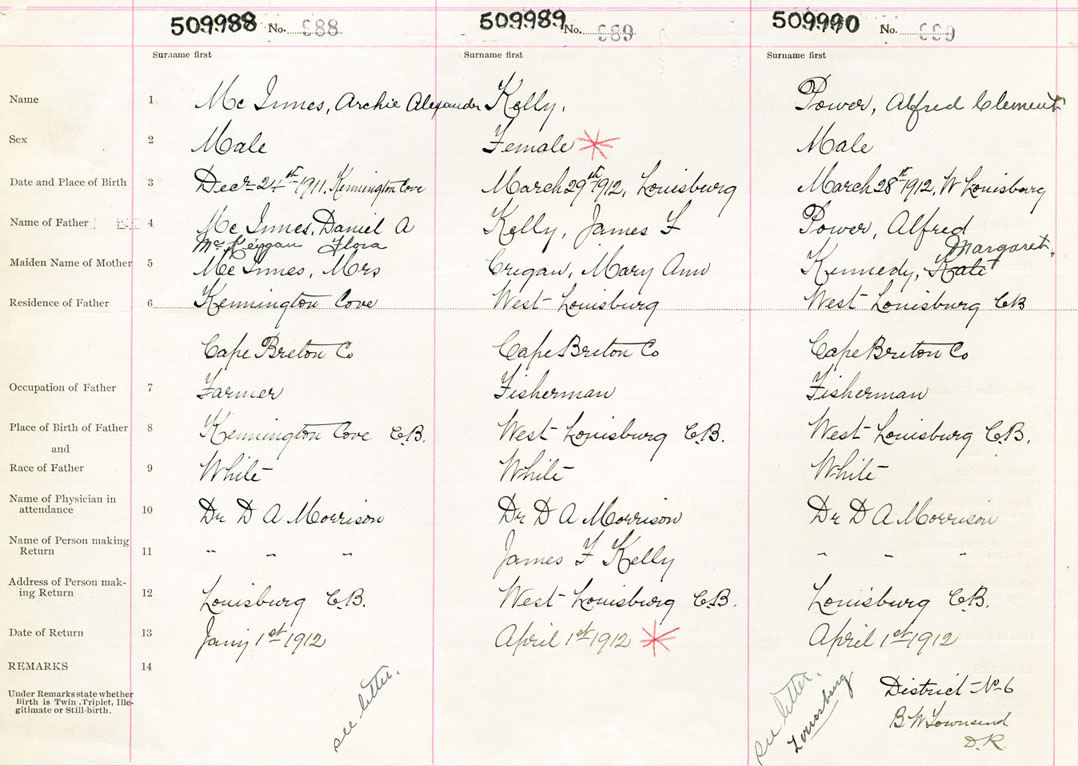 509988 No. 988 509989 No. 989 509990 No. 990
Surname first Surname first Surname first
Name 1 Mc Innes, Archie Alexander Kelly, Power, Alfred Clement
Sex 2 Male Female Male
Date and Place of Birth 3 Decr 24th 1911, Kennington Cove March 29th 1912, Louisburg March 28th 1912, W Louisburg
Name of Father 4 Mc Innes, Daniel A Kelly, James F Power, Alfred
Flora Margaret,
Maiden Name of Mother 5 Mc Innes, Mrs Cregan, Mary Ann Kennedy, Kate
Residence of Father 6 Kennington Cove West Louisburg West Louisburg CB
Cape Breton Co Cape Breton Co Cape Breton Co
Occupation of Father 7 Farmer Fisherman Fisherman
Place of Birth of Father 8 Kennington Cove C.B. West Louisburg C.B. West Louisburg C.B.
and
Race of Father 9 White White White
Name of Physician in
attendance 10 Dr D A Morrison Dr D A Morrison Dr D A Morrison
Name of Person making
Return 11 " " " James F Kelly " " "
Address of Person mak-
ing Return 12 Louisburg C.B. West Louisburg C.B. Louisburg C.B.
Date of Return 13 Jany 1st 1912 April 1st 1912 April 1st 1912
REMARKS 14
Under Remarks state whether
Birth is Twin, Triplet, Ille-
gitimate or Still-birth.
see letter.
see letter.
Louisburg
District No 6
B W Townsend
D.R.